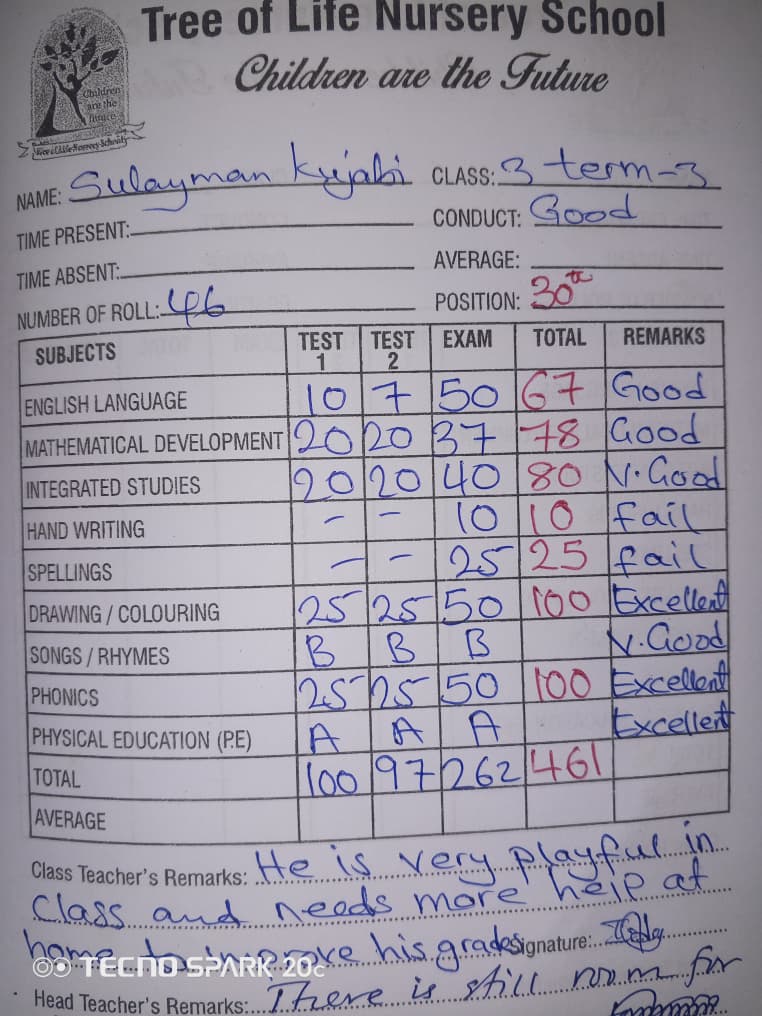 Tree of Life Nursery School
Children are the Future
Children
are the
future
Tree of Life Nursery School
NAME: Sulayman Kujabi CLASS: 3 term-3
TIME PRESENT: CONDUCT: Good
TIME ABSENT: AVERAGE:
NUMBER OF ROLL: 46 POSITION: 30th
SUBJECTS TEST 1 TEST 2 EXAM TOTAL REMARKS
ENGLISH LANGUAGE 10 7 50 67 Good
MATHEMATICAL DEVELOPMENT 20 20 37 78 Good
INTEGRATED STUDIES 20 20 40 80 V. Good
HAND WRITING - - 10 10 fail
SPELLINGS - - 25 25 fail
DRAWING / COLOURING 25 25 50 100 Excellent
SONGS / RHYMES B B B V. Good
PHONICS 25 25 50 100 Excellent
PHYSICAL EDUCATION (P.E) A A A Excellent
TOTAL 100 97 262 461
AVERAGE
Class Teacher's Remarks: He is very playful in
Class and needs more help at
home to improve his grades Signature:
TECNO SPARK 20C
Head Teacher's Remarks: There is still room for